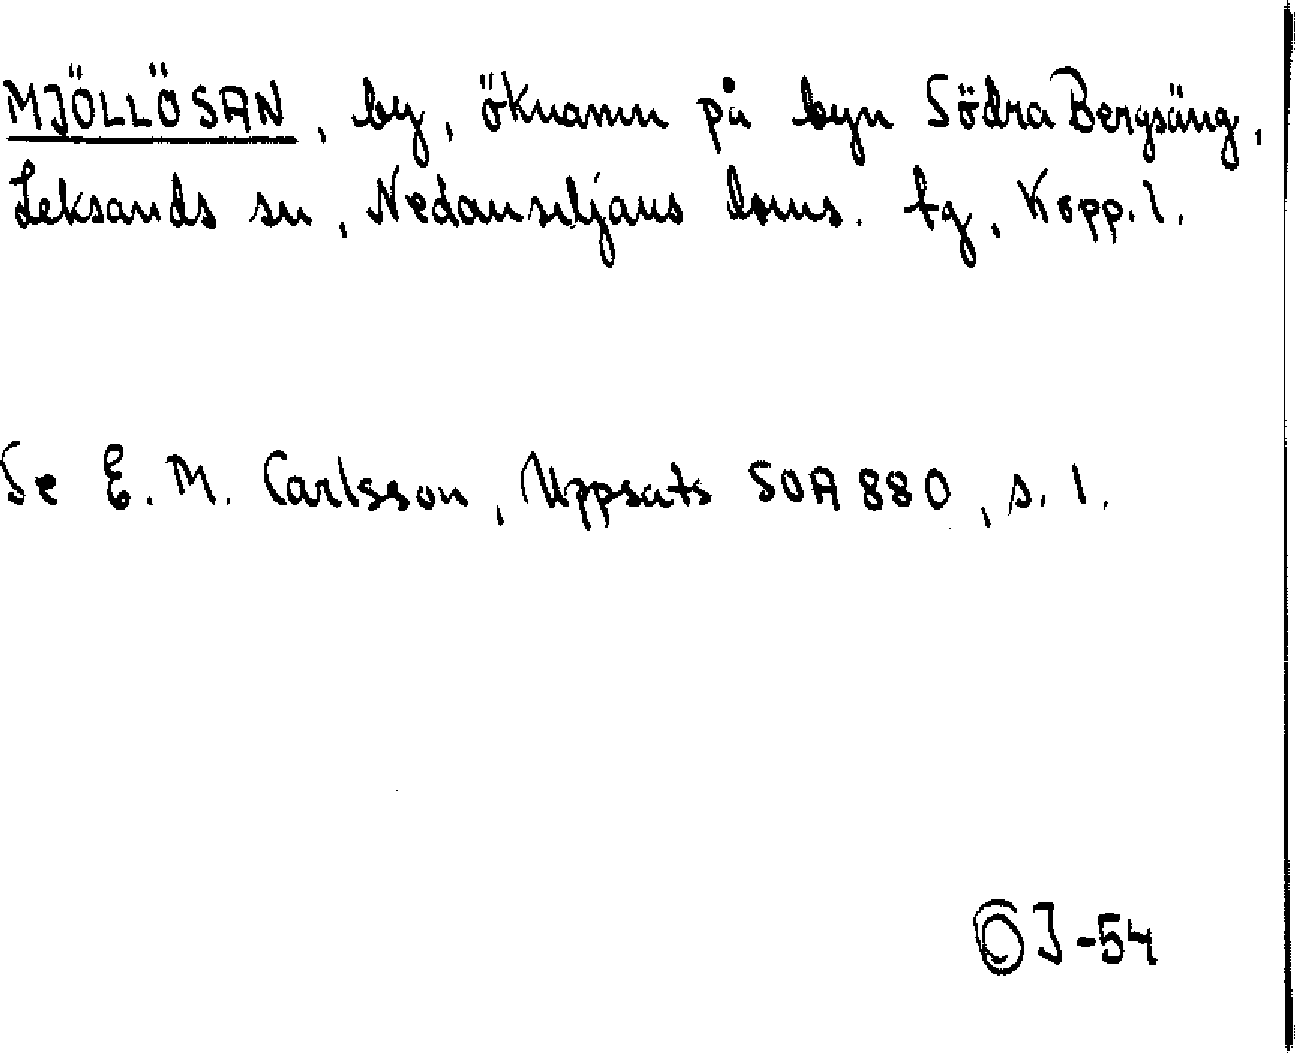 MJÖLLÖSAN, by, öknamn på byn Södra Bergsäng,
Leksands sn, Nedansiljans doms. tg, Kopp. l.
Se E. M. Carlsson, Uppsats SOA 880, s. 1.
OJ-54